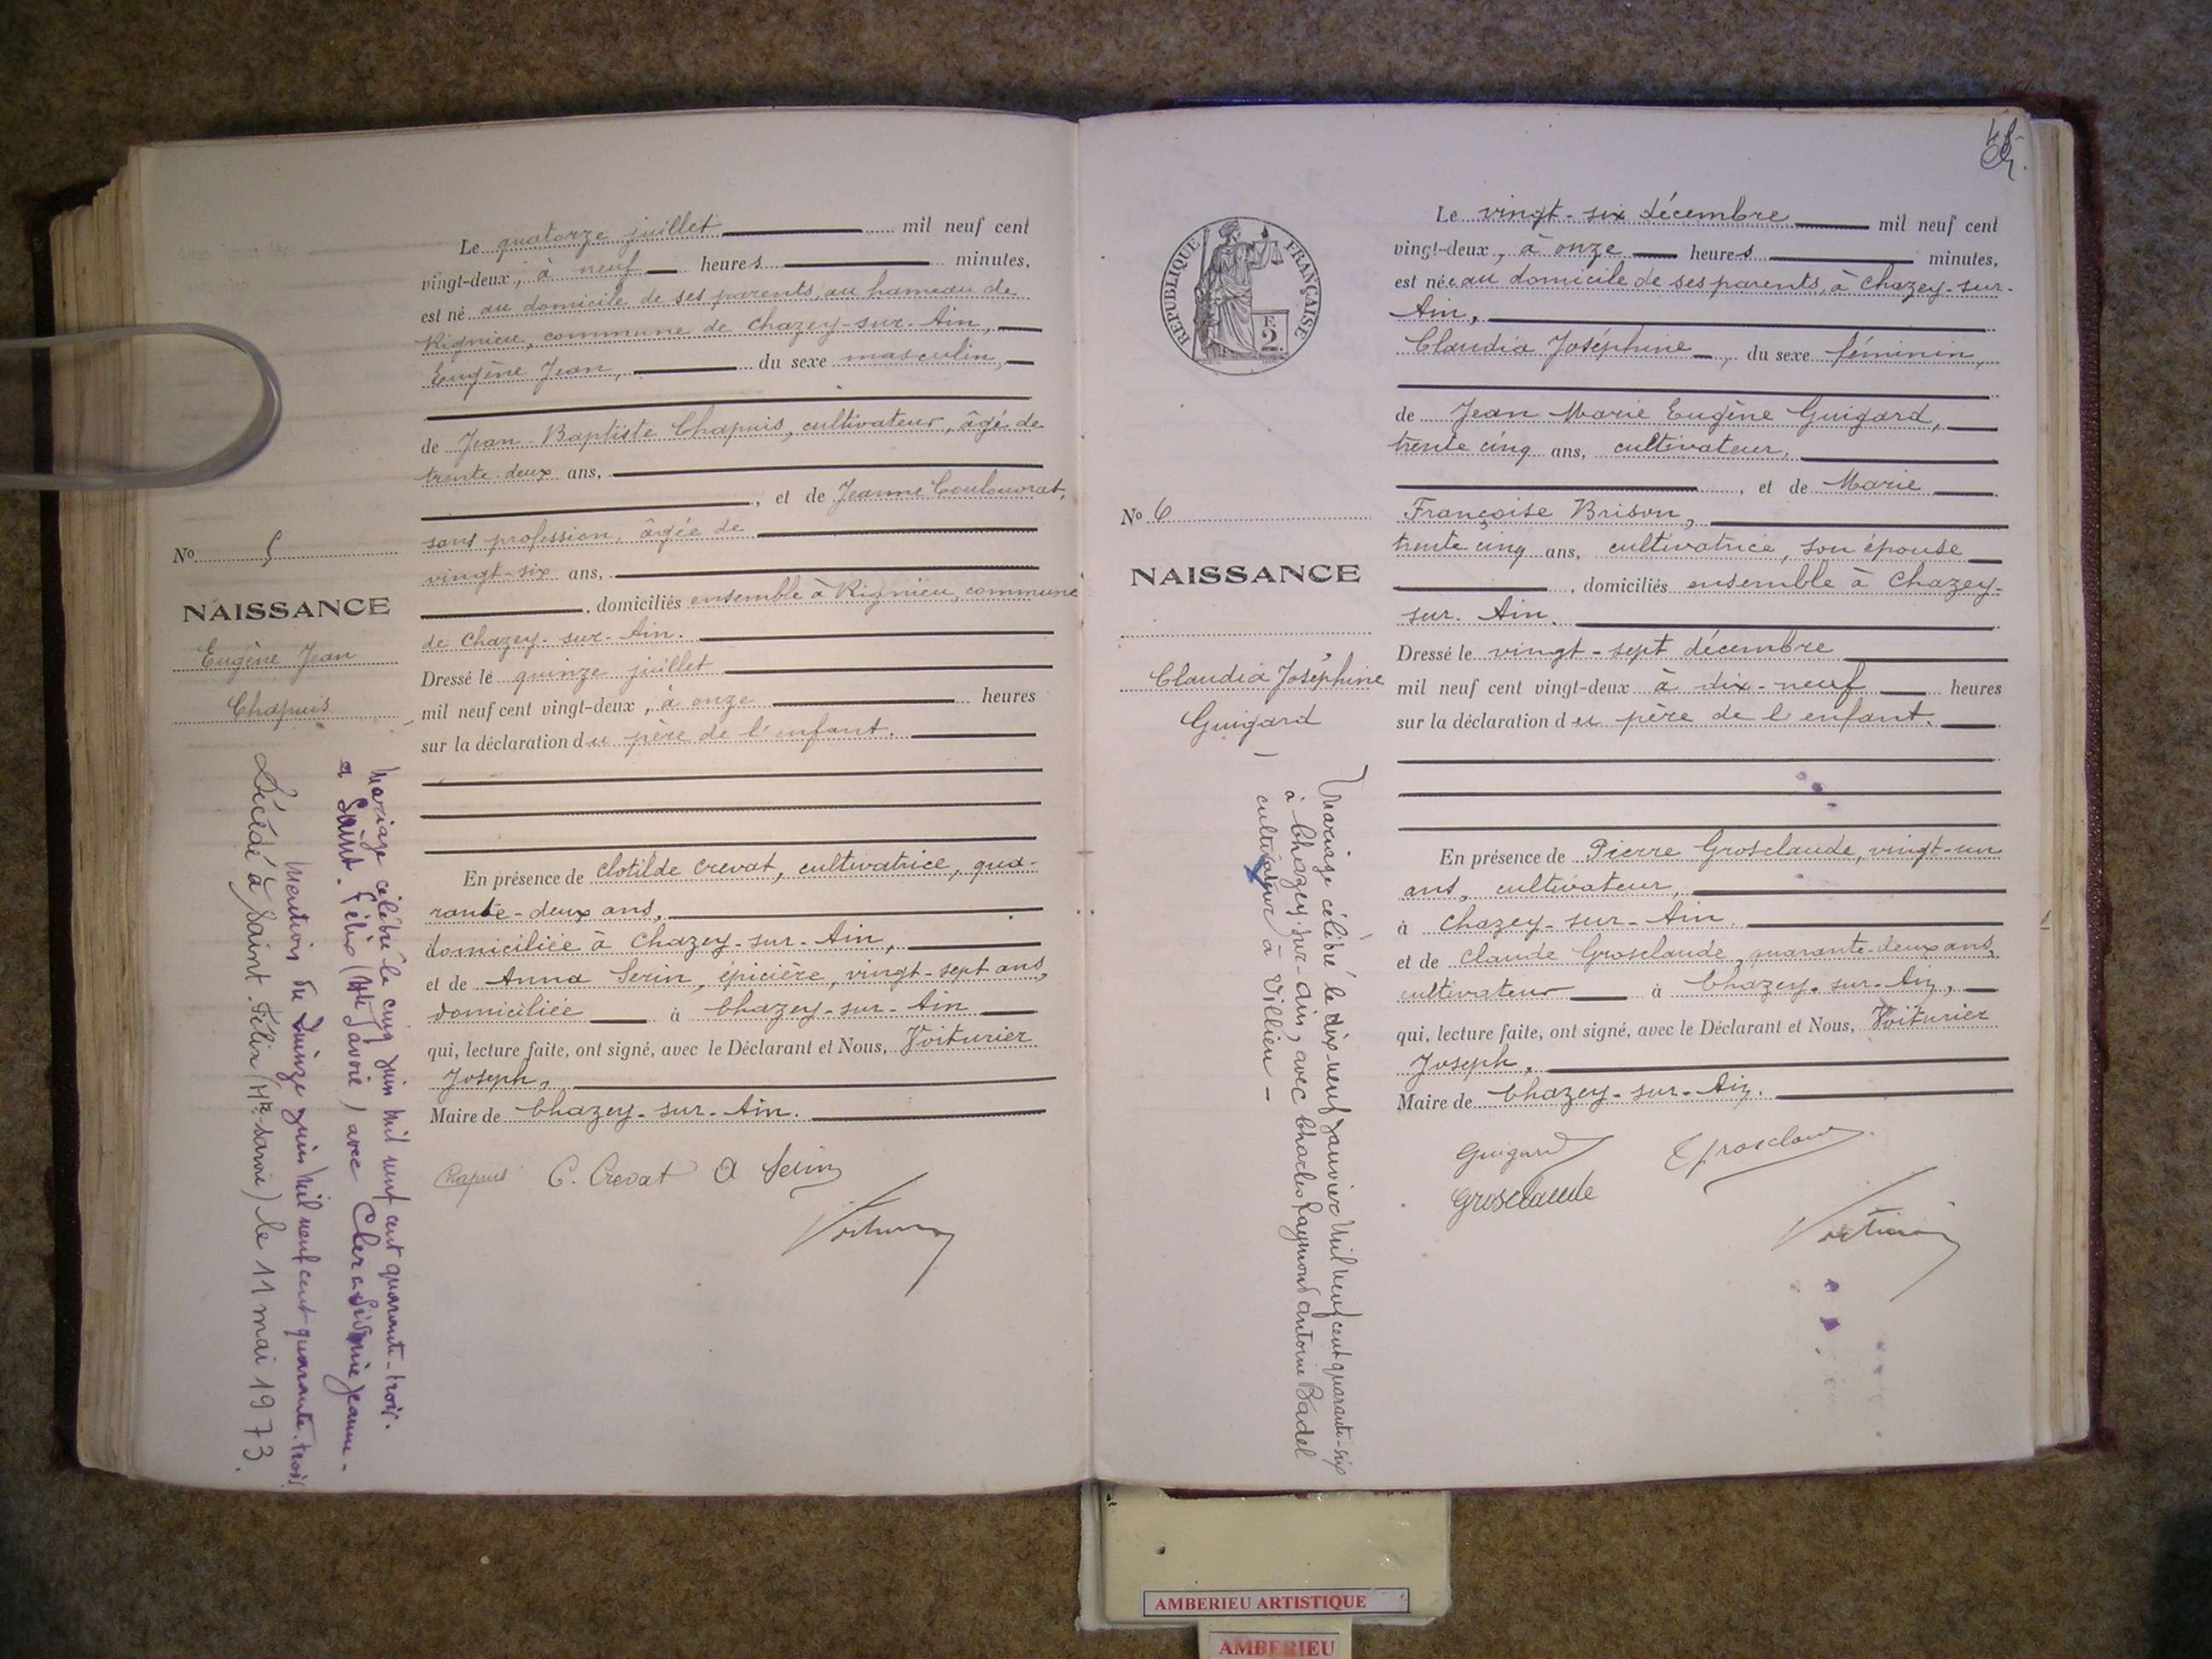 Le quatorze juillet mil neuf cent
vingt-deux, à neuf heures minutes,
est né au domicile de ses parents, au hameau de
Rignieu, commune de Chazey-sur-Ain,
Eugène Jean, du sexe masculin,
de Jean-Baptiste Chapuis, cultivateur, âgé de
trente-deux ans,
, et de Jeanne Coulouvrat,
sans profession, âgée de
vingt-six ans,
, domiciliés ensemble à Rignieu, commune
de Chazey-sur-Ain.
Dressé le quinze juillet
mil neuf cent vingt-deux, à onze heures
sur la déclaration du père de l'enfant.
En présence de Clotilde Crevat, cultivatrice, qua-
rante-deux ans,
domiciliée à Chazey-sur-Ain,
et de Anna Serin, épicière, vingt-sept ans,
domiciliée à Chazey-sur-Ain
qui, lecture faite, ont signé, avec le Déclarant et Nous, Voiturier
Joseph,
Maire de Chazey-sur-Ain.
Chapuis C. Crevat A Serin
Voiturier
No 5
NAISSANCE
Eugène Jean
Chapuis
Mariage célébré le cinq juin mil neuf cent quarante-trois.
à Saint-Félix (Hte Savoie) avec Clerc Sidonie Jeanne-
Mention du quinze juin mil neuf cent quarante-trois
Décédé à Saint-Félix (Hte-Savoie) le 11 mai 1973.
RÉPUBLIQUE FRANÇAISE
E
2.
No 6
NAISSANCE
Claudia Joséphine
Guigard
Mariage célébré le dix-neuf janvier mil neuf cent quarante-six
à Chazey-sur-Ain, avec Charles Raymond Antoine Badel
cultivateur à Villieu -
Le vingt-six décembre mil neuf cent
vingt-deux, à onze heures minutes,
est née au domicile de ses parents, à Chazey-sur-
Ain,
Claudia Joséphine, du sexe féminin,
de Jean Marie Eugène Guigard,
trente cinq ans, cultivateur,
, et de Marie
Françoise Brison,
trente cinq ans, cultivatrice, son épouse
, domiciliés ensemble à Chazey-
sur-Ain.
Dressé le vingt-sept décembre
mil neuf cent vingt-deux à dix-neuf heures
sur la déclaration du père de l'enfant.
En présence de Pierre Grosclaude, vingt-un
ans, cultivateur,
à Chazey-sur-Ain.
et de Claude Grosclaude, quarante-deux ans,
cultivateur à Chazey-sur-Ain,
qui, lecture faite, ont signé, avec le Déclarant et Nous, Voiturier
Joseph,
Maire de Chazey-sur-Ain.
Guigard
Grosclaude
Voiturier
AMBERIEU ARTISTIQUE
AMBERIEU